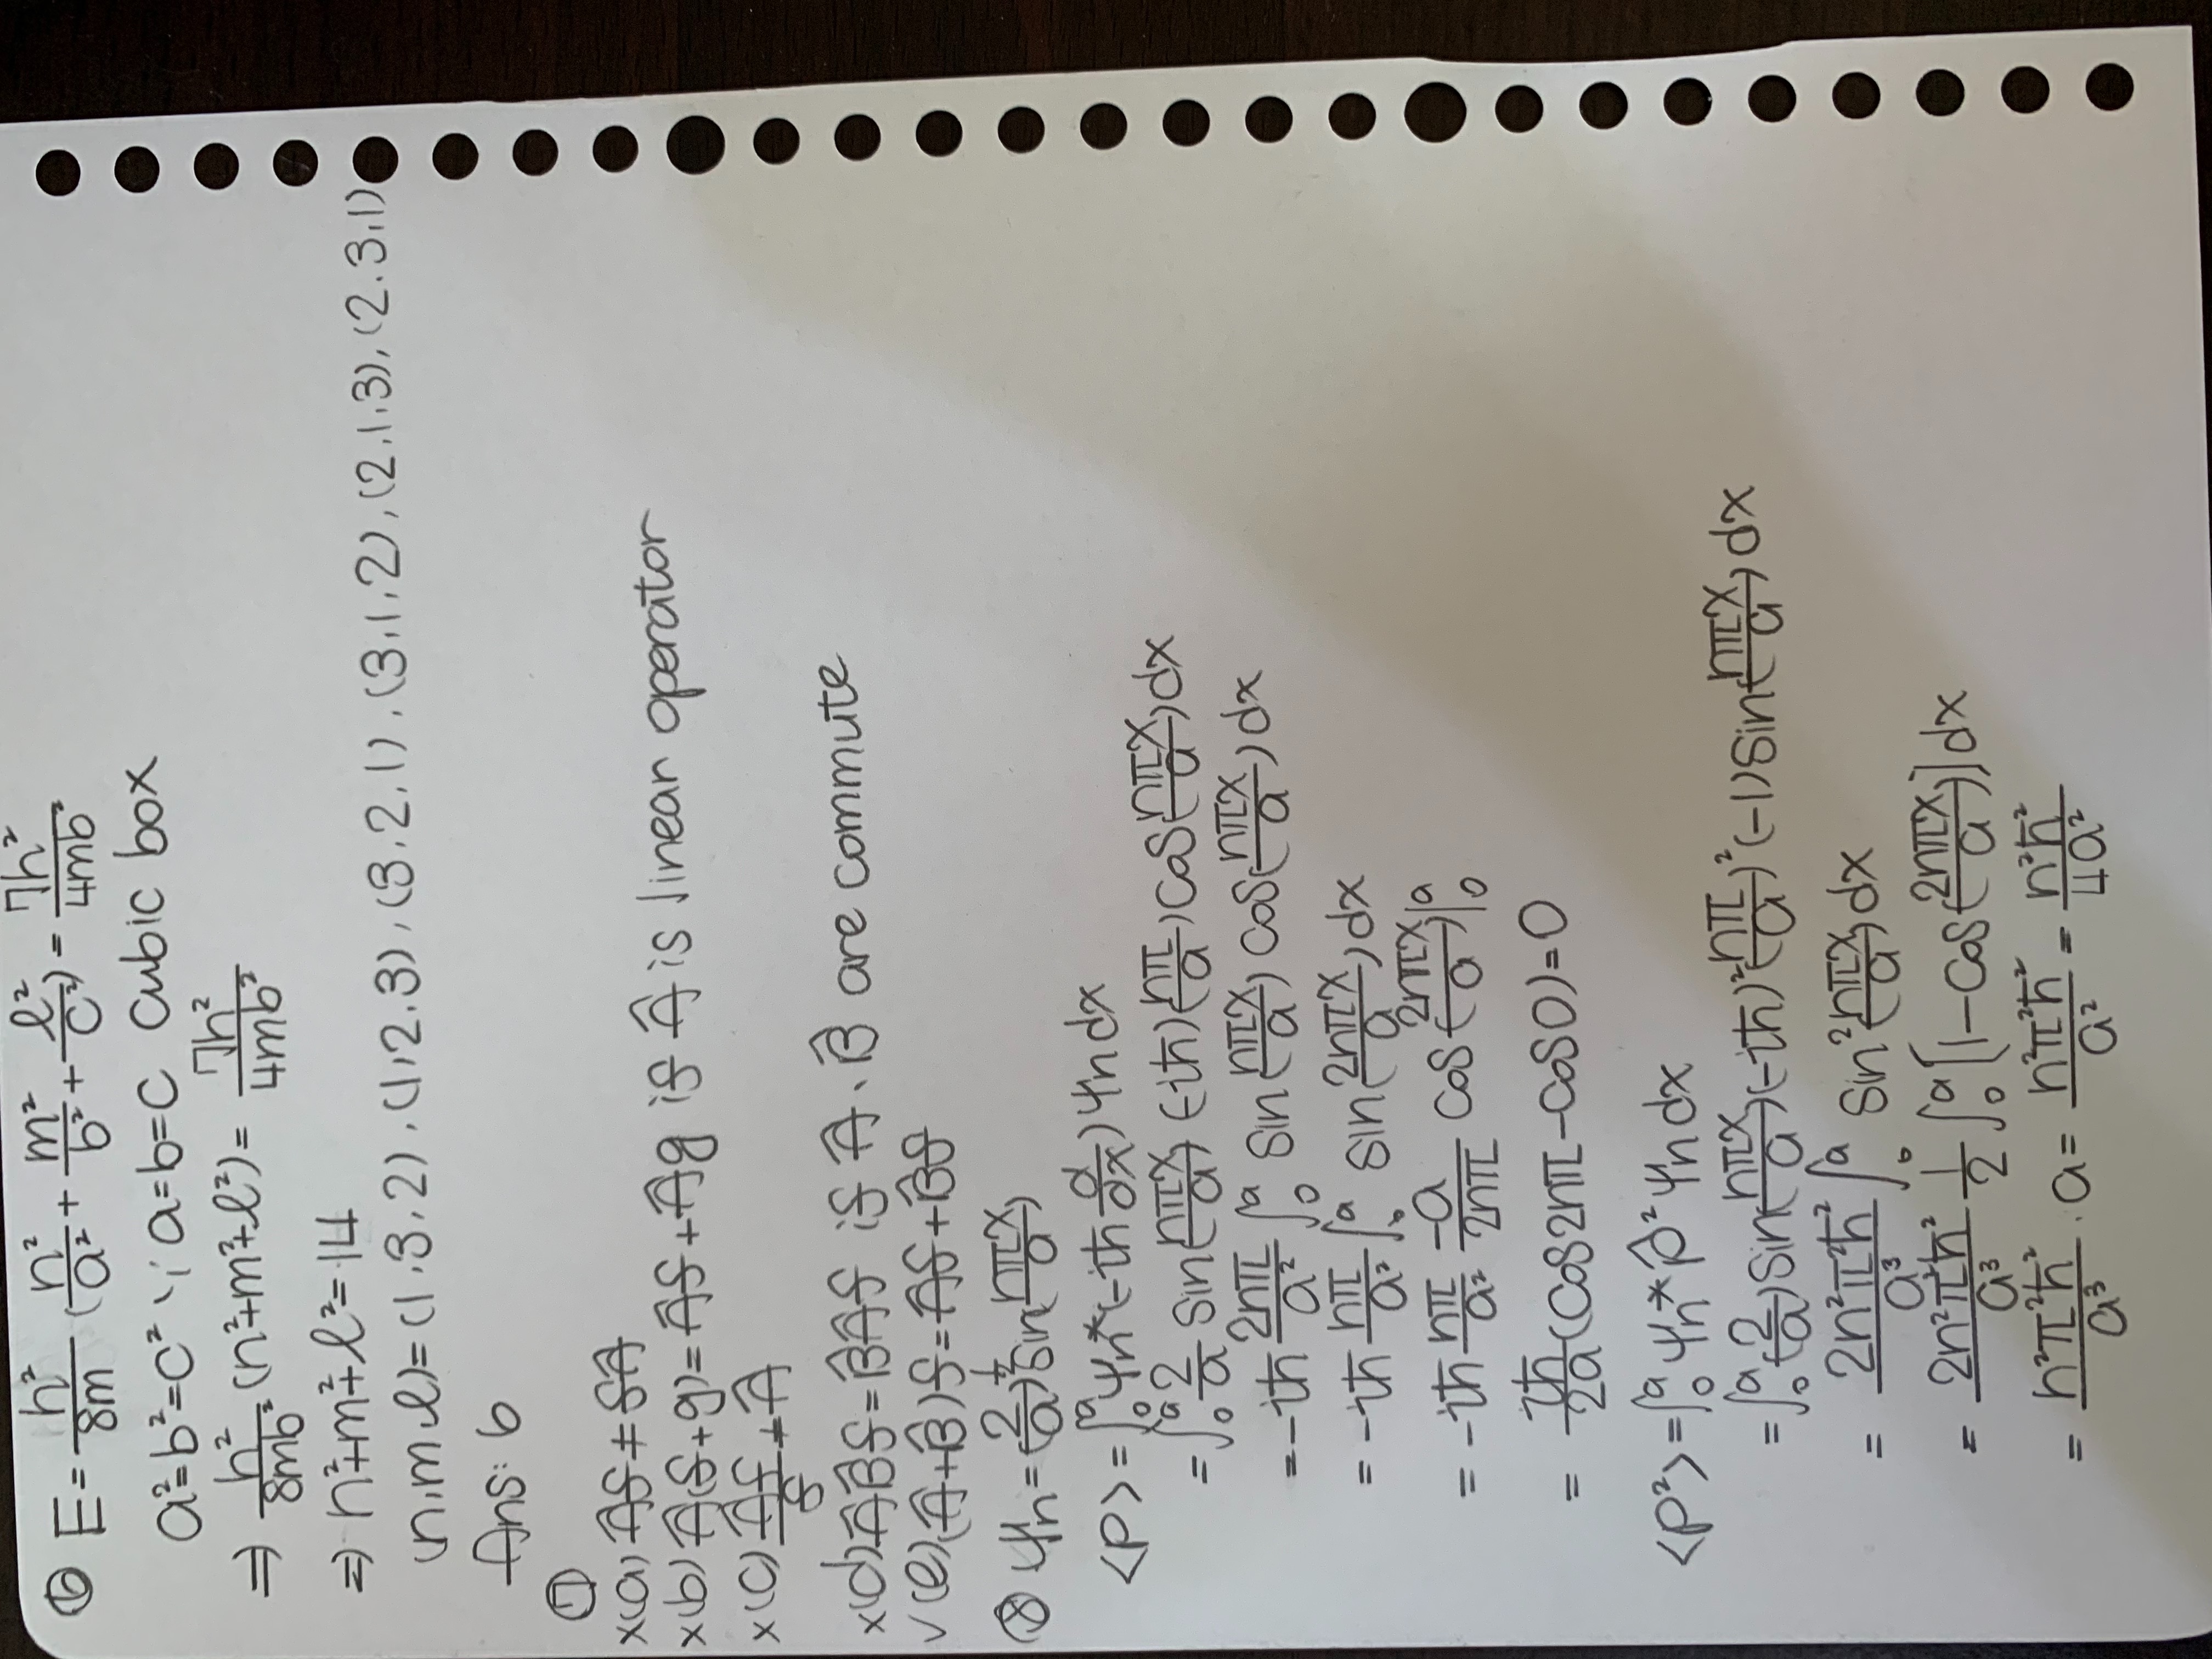 ⑥ E = h²/8m (n²/a² + m²/b² + l²/c²) = 7h²/4mb²
a²=b²=c² ∵ a=b=c cubic box
⇒ h²/8mb² (n²+m²+l²) = 7h²/4mb²
⇒ n²+m²+l²=14
(n,m,l)=(1,3,2), (1,2,3), (3,2,1), (3,1,2), (2,1,3), (2,3,1)
Ans: 6
⑦
x(a) Âf ≠ fÂ
x(b) Â(f+g)=Âf+Âg if Â is linear operator
x(c) Âf/f ≠ Â
x(d) ÂB̂f=B̂Âf if Â、B̂ are commute
√(e) (Â+B̂)f=Âf+B̂f
⑧ ψn = (2/a)^½ sin(nπx/a)
<p> = ∫₀ᵃ ψn*(-iħ d/dx) ψn dx
= ∫₀ᵃ 2/a sin(nπx/a) (-iħ)(nπ/a) cos(nπx/a) dx
= -iħ 2nπ/a² ∫₀ᵃ sin(nπx/a) cos(nπx/a) dx
= -iħ nπ/a² ∫₀ᵃ sin(2nπx/a) dx
= -iħ nπ/a² -a/2nπ cos(2nπx/a)|₀ᵃ
= iħ/2a (cos2nπ - cos0) = 0
<p²> = ∫₀ᵃ ψn* p̂² ψn dx
= ∫₀ᵃ (2/a) sin(nπx/a) (-iħ)² (nπ/a)² (-1) sin(nπx/a) dx
= 2n²π²ħ²/a³ ∫₀ᵃ sin²(nπx/a) dx
= 2n²π²ħ²/a³ 1/2 ∫₀ᵃ [1-cos(2nπx/a)] dx
= n²π²ħ²/a³ · a = n²π²ħ²/a² = n²ħ²/4a²